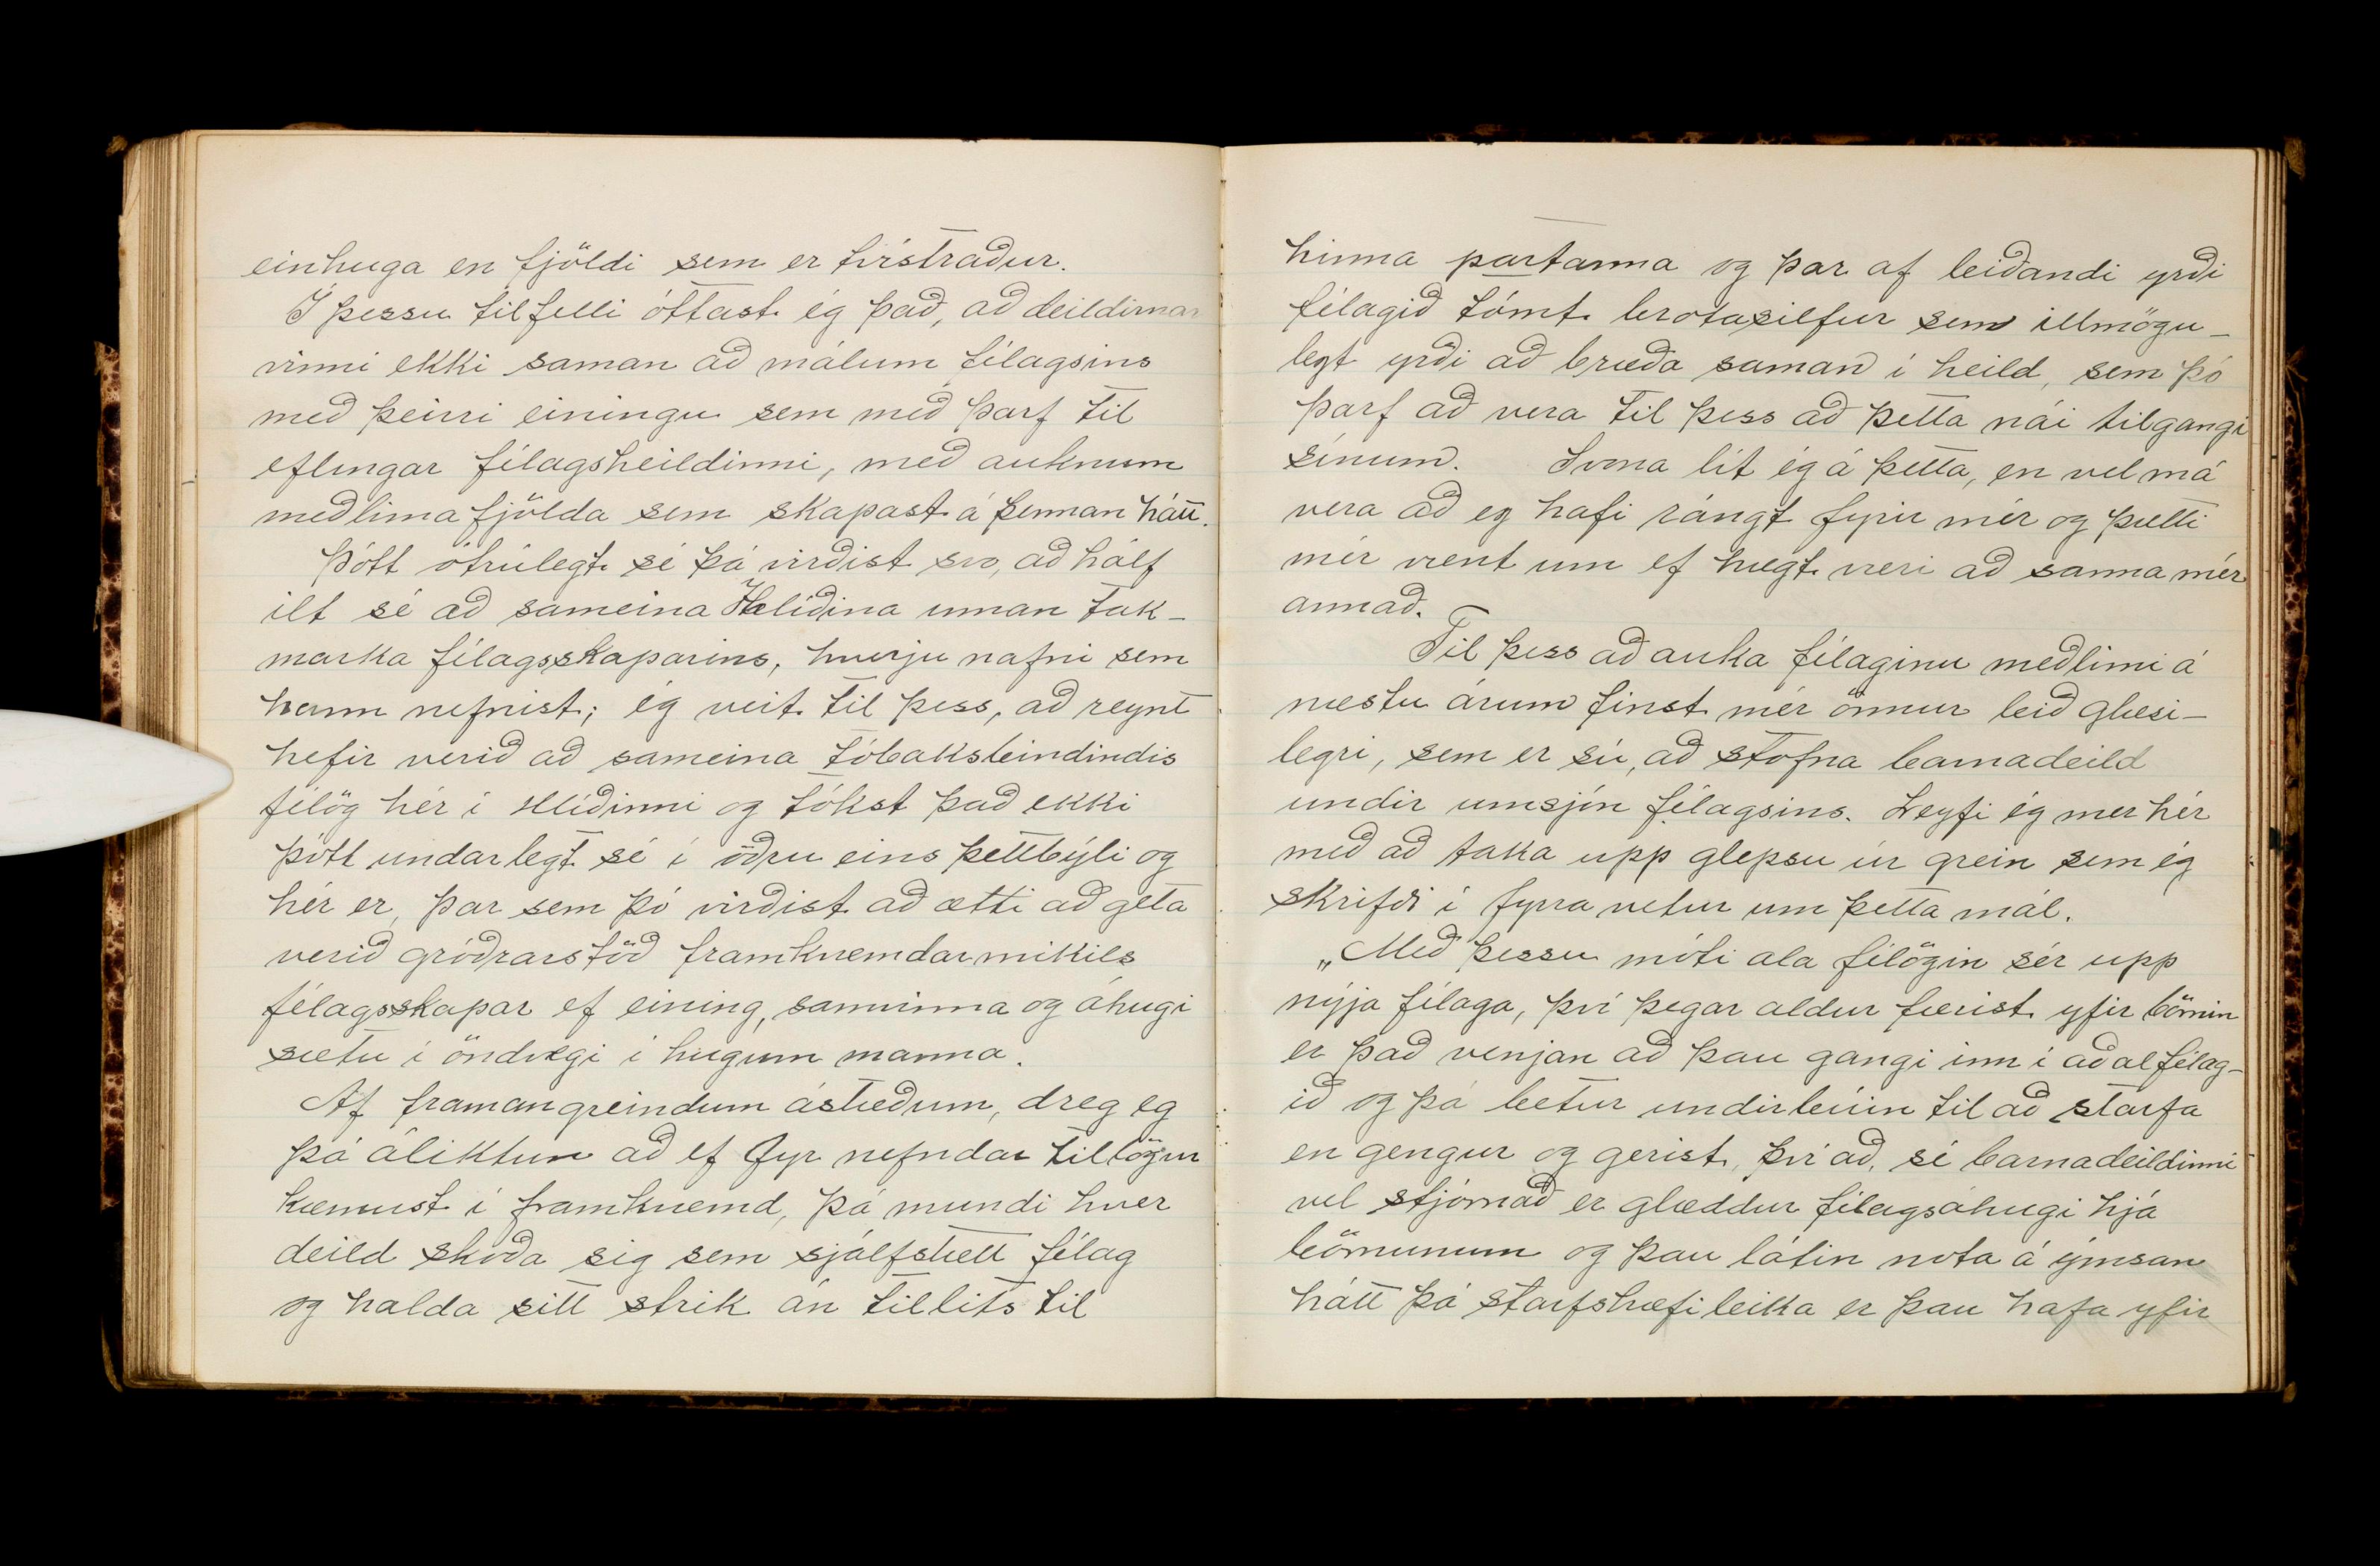 einhuga en fjöldi sem er tvístraður.
Í þessu tilfelli óttast ég það, að deildirnar
vinni ekki saman að málum félagsins
með þeirri einingu sem með þarf til
eflingar félagsheildinni, með auknum
meðlima fjölda sem skapast á þennan hátt.
Þótt ótrúlegt sé þá virðist svo, að hálf
ilt sé að sameina Hlíðina innan tak-
marka félagsskaparins, hverju nafni sem
hann nefnist; ég veit til þess, að reynt
hefir verið að sameina tóbaksbindindis
félög hér í Hlíðinni og tókst það ekki
þótt undarlegt sé í öðru eins þéttbýli og
hér er, þar sem þó virðist að ætti að geta
verið gróðrarstöð framkvæmdarmikils
félagsskapar ef eining, samvinna og áhugi
sætu í öndvegi í hugum manna.
Af framangreindum ástæðum, dreg eg
þá áliktun að ef fyr nefndar tillögur
kæmust í framkvæmd, þá mundi hver
deild skoða sig sem sjálfstætt félag
og halda sitt strik án tillits til
hinna partanna og þar af leiðandi yrði
félagið tómt brotasilfur sem illmögu-
legt yrði að bræða saman í heild, sem þó
þarf að vera til þess að þetta nái tilgangi
sínum. Svona lít ég á þetta, en vel má
vera að eg hafi rángt fyrir mér og þætti
mér vænt um ef hægt væri að sanna mér
annað.
Til þess að auka félaginu meðlimi á
næstu árum finst mér önnur leið glæsi-
legri, sem er sú, að stofna barnadeild
undir umsjón félagsins. Leyfi ég mer hér
með að taka upp glepsu úr grein sem ég
skrifði í fyrra vetur um þetta mál.
„Með þessu móti ala félögin sér upp
nýja félaga, því þegar aldur færist yfir börnin
er það venjan að þau gangi inn í aðalfélag-
ið og þá betur undirbúin til að starfa
en gengur og gerist, því að, sé barnadeildinni
vel stjórnað er glæddur félagsáhugi hjá
börnunum og þau látin nota á ýmsan
hátt þá starfshæfileika er þau hafa yfir